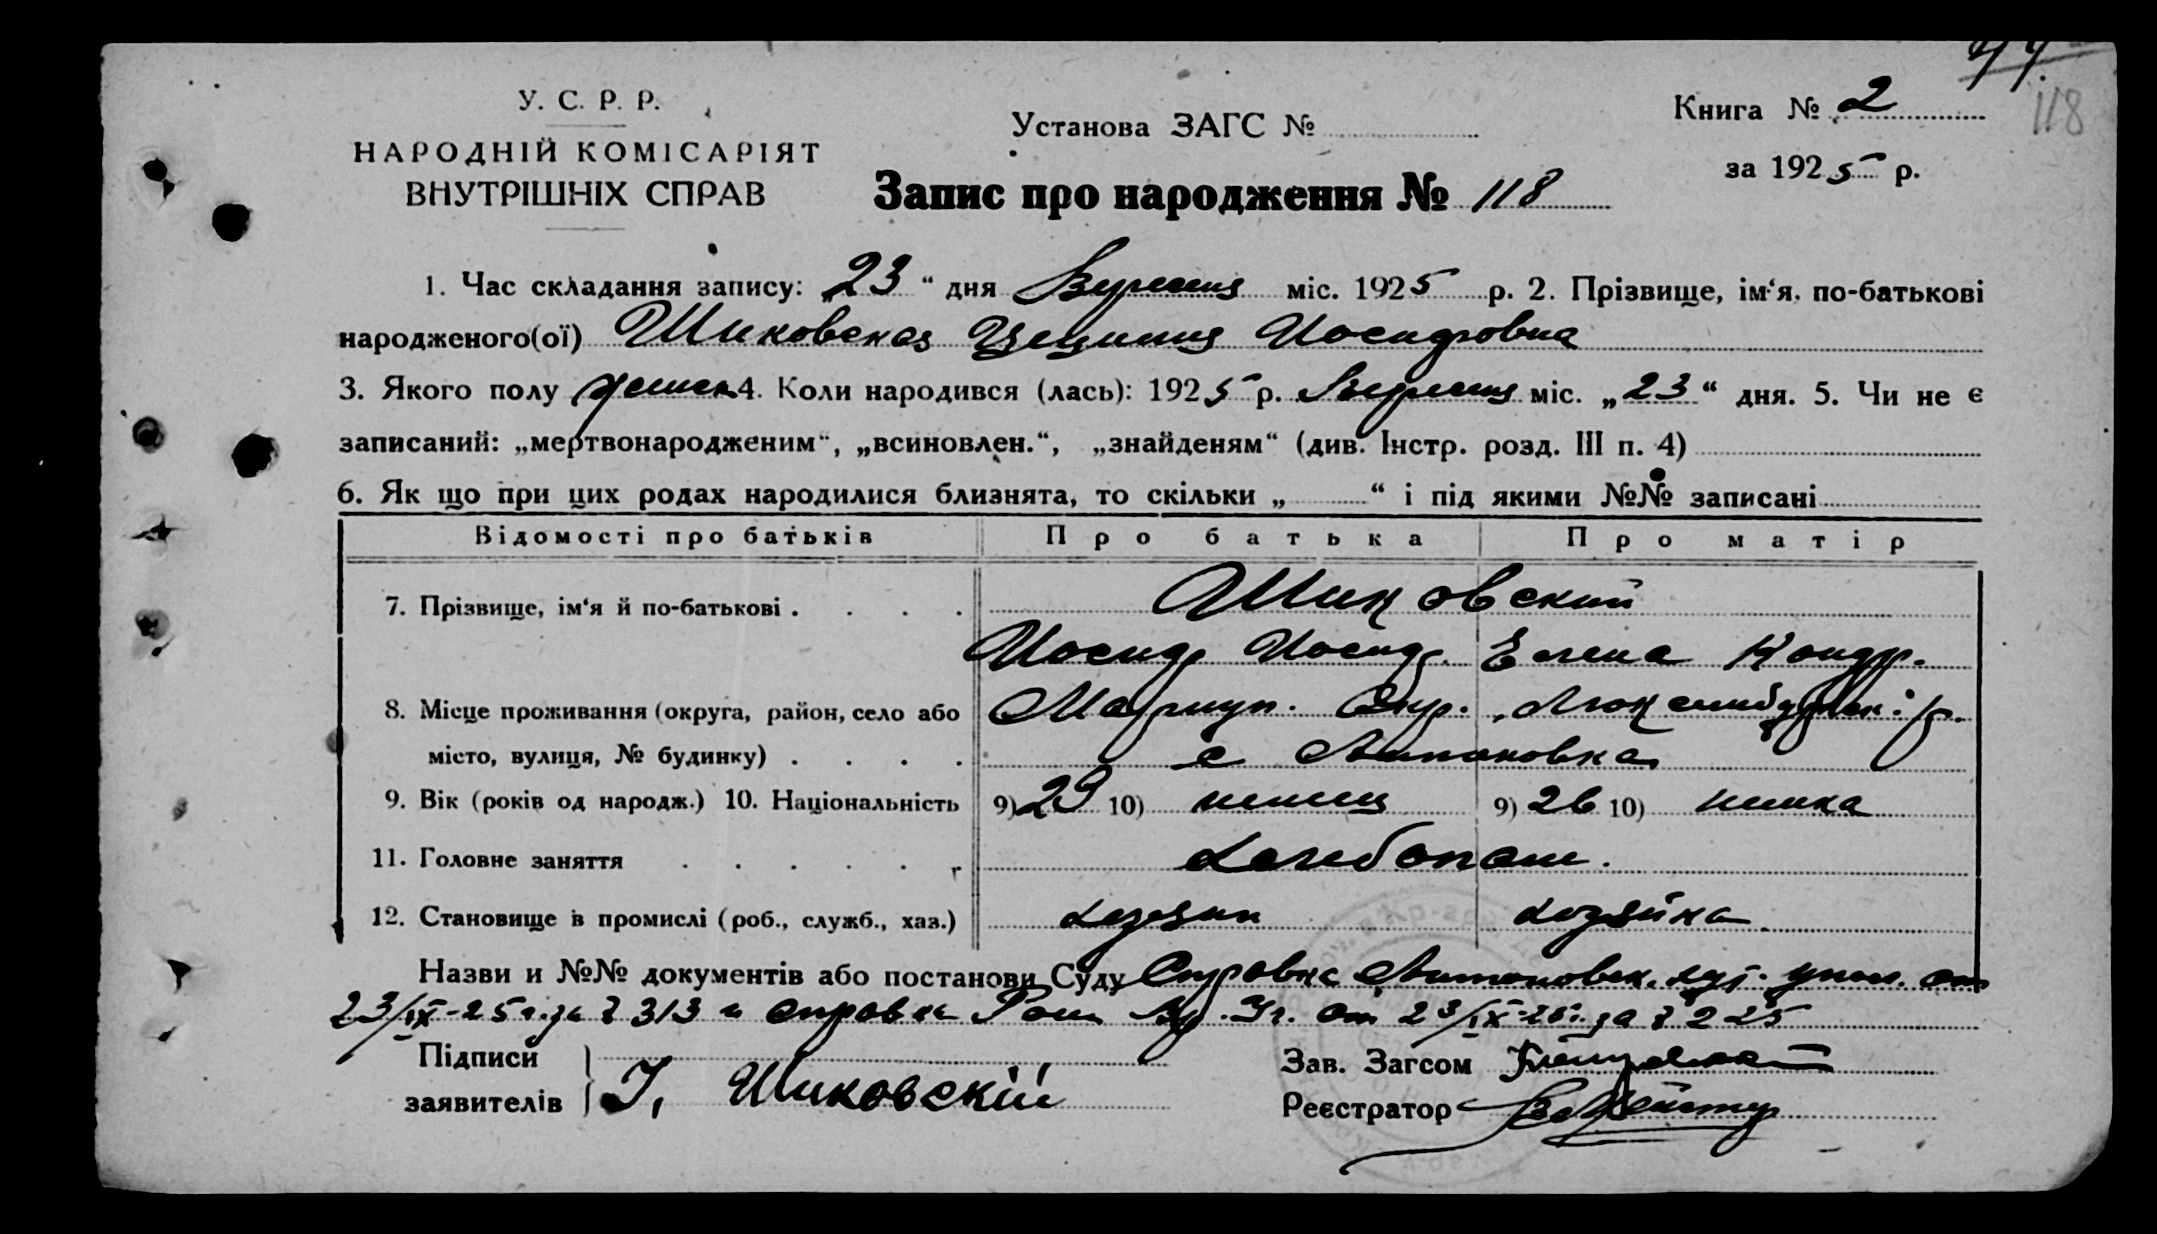 У. С. Р. Р.
НАРОДНІЙ КОМІСАРІЯТ
ВНУТРІШНІХ СПРАВ
Установа ЗАГС №
Книга № 2
118
за 1925 р.
Запис про народження № 118
1. Час складання запису: „23“ дня Вересня міс. 1925 р. 2. Прізвище, ім‘я, по-батькові
народженого(ої) Шиковская Цецилия Иосифовна
3. Якого полу женск 4. Коли народився (лась): 1925 р. Вересня міс. „23“ дня. 5. Чи не є
записаний: „мертвонародженим“, „всиновлен.“, „знайденям“ (див. Інстр. розд. III п. 4)
6. Як що при цих родах народилися близнята, то скільки „ “ і під якими №№ записані
Відомості про батьків Про батька Про матір
7. Прізвище, ім‘я й по-батькові . . . . Шиковский
Иосиф Иосиф. Елена Кондр.
8. Місце проживання (округа, район, село або Мариуп. Окр. Люксембургск. р.
місто, вулиця, № будинку) . . . . с Антоновка
9. Вік (років од народж.) 10. Національність 9) 29 10) немец 9) 26 10) немка
11. Головне заняття . . . . . . Хлебопаш.
12. Становище в промислі (роб., служб., хаз.) хозяин хозяйка
Назви и №№ документів або постанови Суду Справка Антоновск. упол. от
23/IX-25 г. за № 313 и справка от 23/IX-25 г. за № 225
Підписи
заявителів } І. Шиковскій
Зав. Загсом
Реєстратор